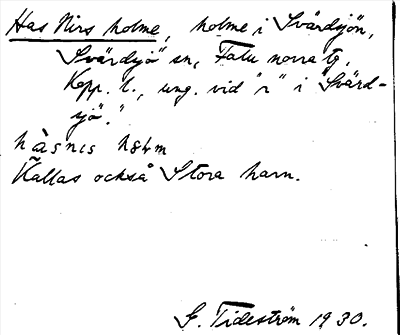 Has Nirs holme, holme i Svärdsjön,
Svärdsjö sn, Falu norra tg,
Kopp. l., ung. vid "r" i "Svärd-
sjö."
Kallas också Stora harn.
G. Tideström 1930.